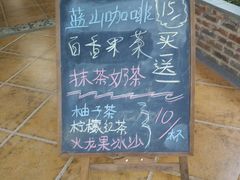 蓝山咖啡 15
百香果茶 买
抹茶奶茶 送
柚子茶
柠檬红茶 10/杯
火龙果冰沙